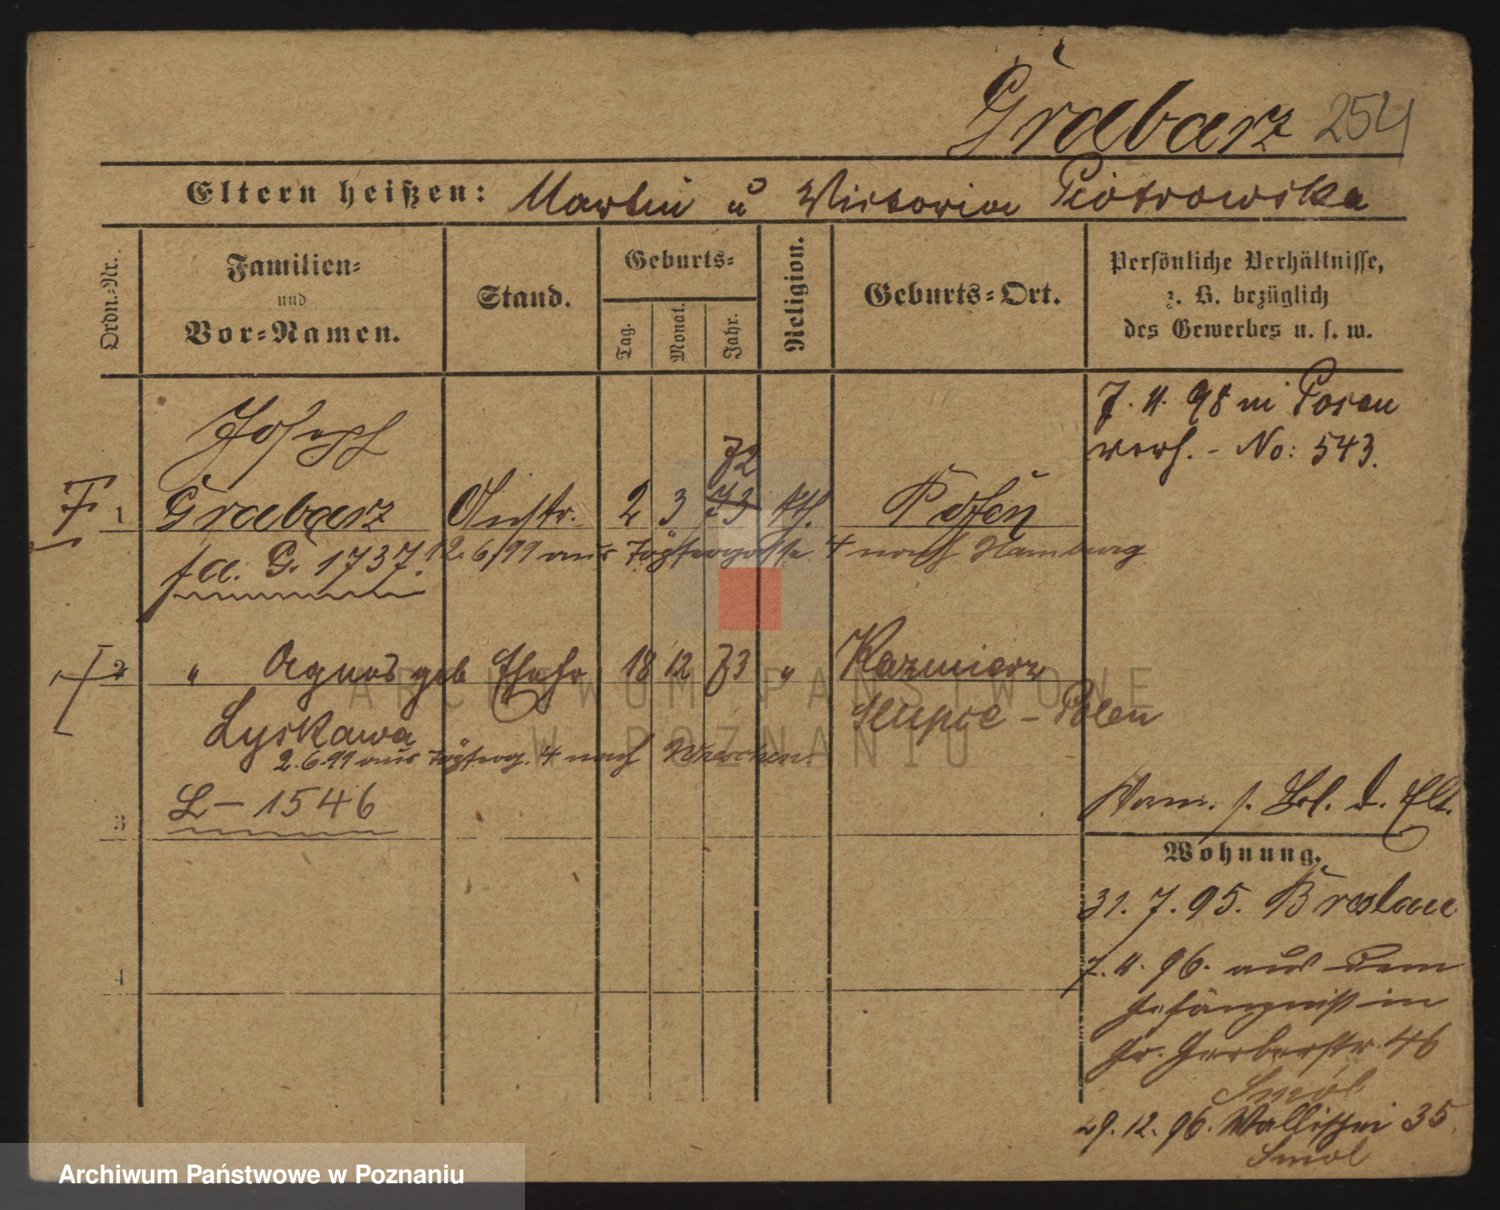 Grabarz 254
Eltern heißen: Martin u Victoria Piotrowska
Ordn.-Nr.
Familien-
und
Vor-Namen.
Stand.
Geburts-
Tag.
Monat.
Jahr.
Religion.
Geburts-Ort.
Persönliche Verhältnisse,
z. B. bezüglich
des Gewerbes u. s. w.
7. 11. 98 in Posen
verh. - No: 543.
Joseph
72
1 Grabarz 2 3 73 kth. Posen
fa. G. 1737. 12.6.99 aus Töpfergasse 4 nach Hamburg
2 " Agnes geb Ehefr 18 12 73 " Kazmierz
Lyskawa Slupce - Polen
2.6.99 aus Töpferg. 4 nach
L - 1546
3
f. d. Elt.
Wohnung.
31. 7. 95. Breslau
7. 11. 96. aus dem
Gefängniss in
Gr. Gerberstr. 46
Smol
4
29. 12. 96. Wallischei 35
Smol
ARCHIWUM PAŃSTWOWE
W POZNANIU
Archiwum Państwowe w Poznaniu